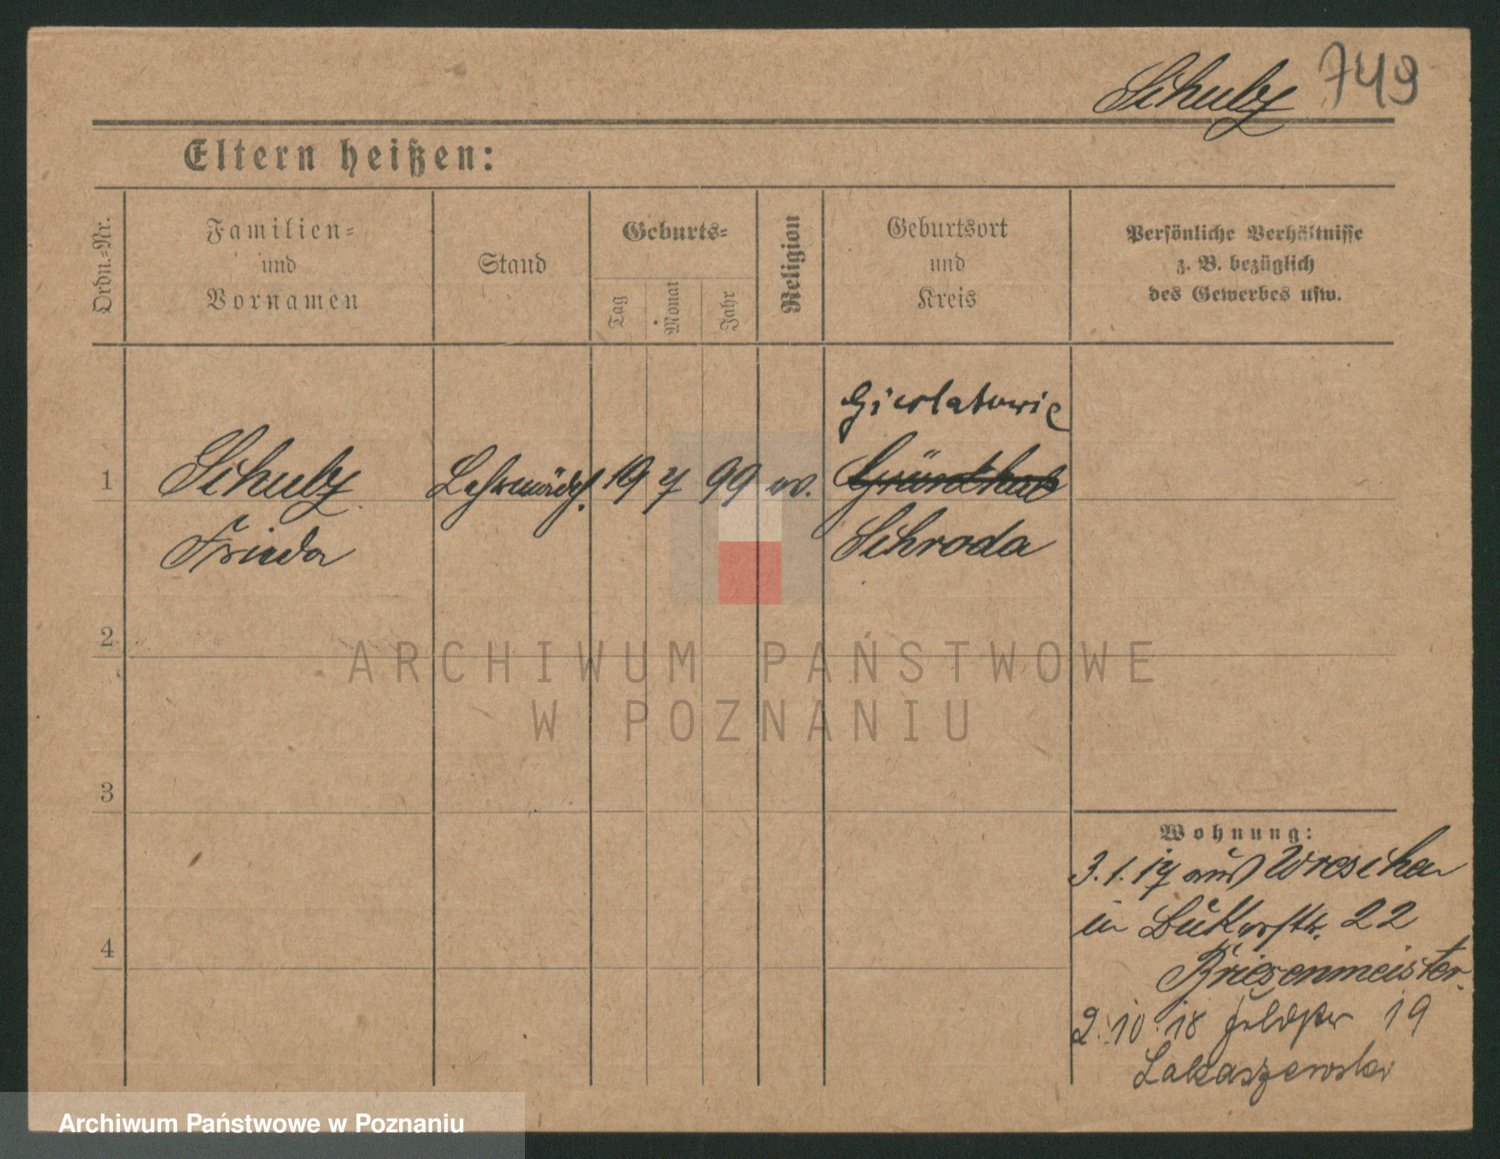 Schulz 749
Eltern heißen:
Ordn.-Nr.
Familien-
und
Vornamen
Stand
Geburts-
Tag
Monat
Jahr
Religion
Geburtsort
und
Kreis
Persönliche Verhältnisse
z. B. bezüglich
des Gewerbes usw.
Gierlatowie
1 Schulz Lehrmädch. 19 7 99 ev.
Frieda Schroda
2
ARCHIWUM PAŃSTWOWE
W POZNANIU
3
Wohnung:
3.1.17 aus Wreschen
in Bukerstr. 22
Briesenmeister
4
2.10.18 Feldstr 19
Archiwum Państwowe w Poznaniu